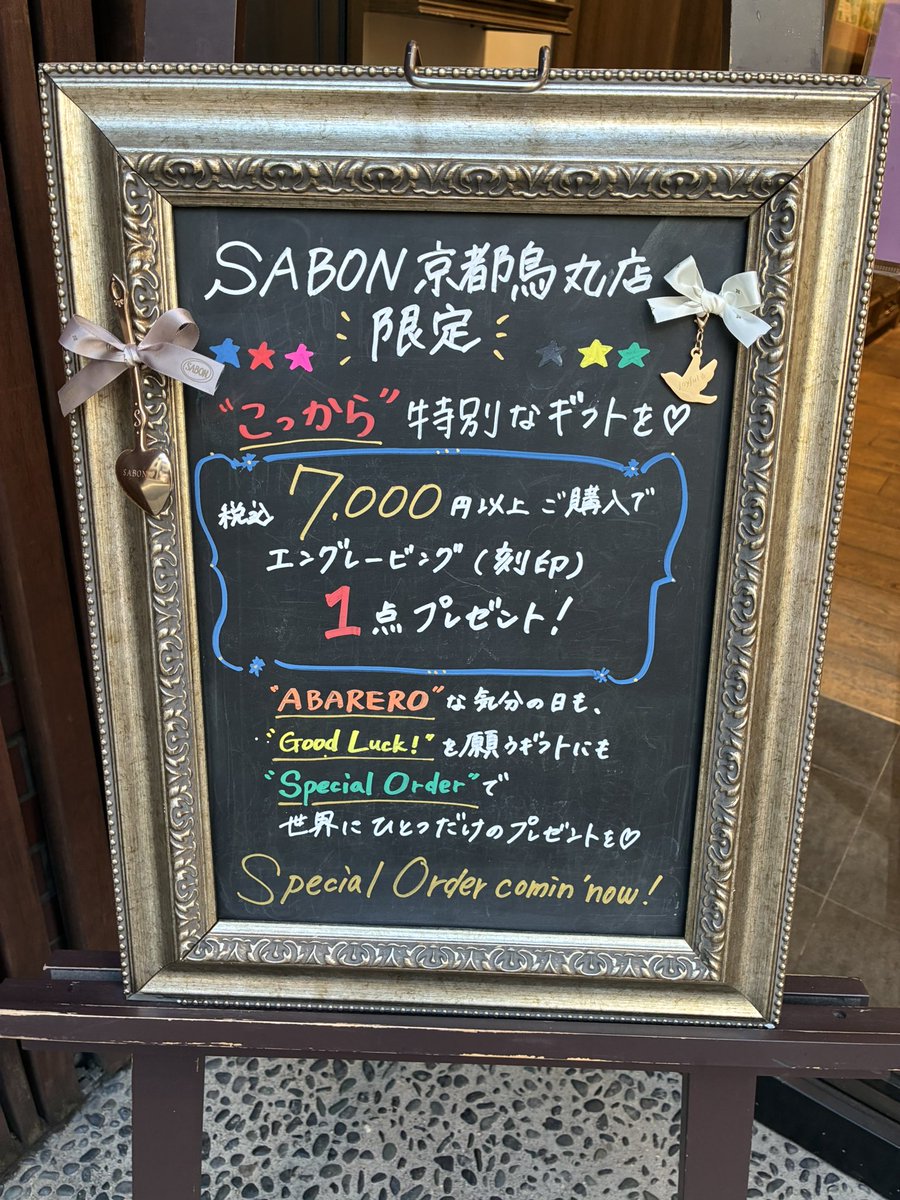 SABON京都烏丸店
限定
"こっから"特別なギフトを♡
税込7,000円以上ご購入で
エングレービング(刻印)
1点プレゼント!
"ABARERO"な気分の日も、
"Good Luck!"を願うギフトにも
"Special Order"で
世界にひとつだけのプレゼントを♡
Special Order comin'now!
SABON
SABON